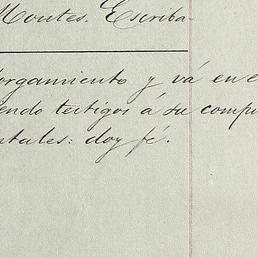 Montes. Escriba-
orgamiento y vá en e
endo testigos á su comp
ntales: doy fé.